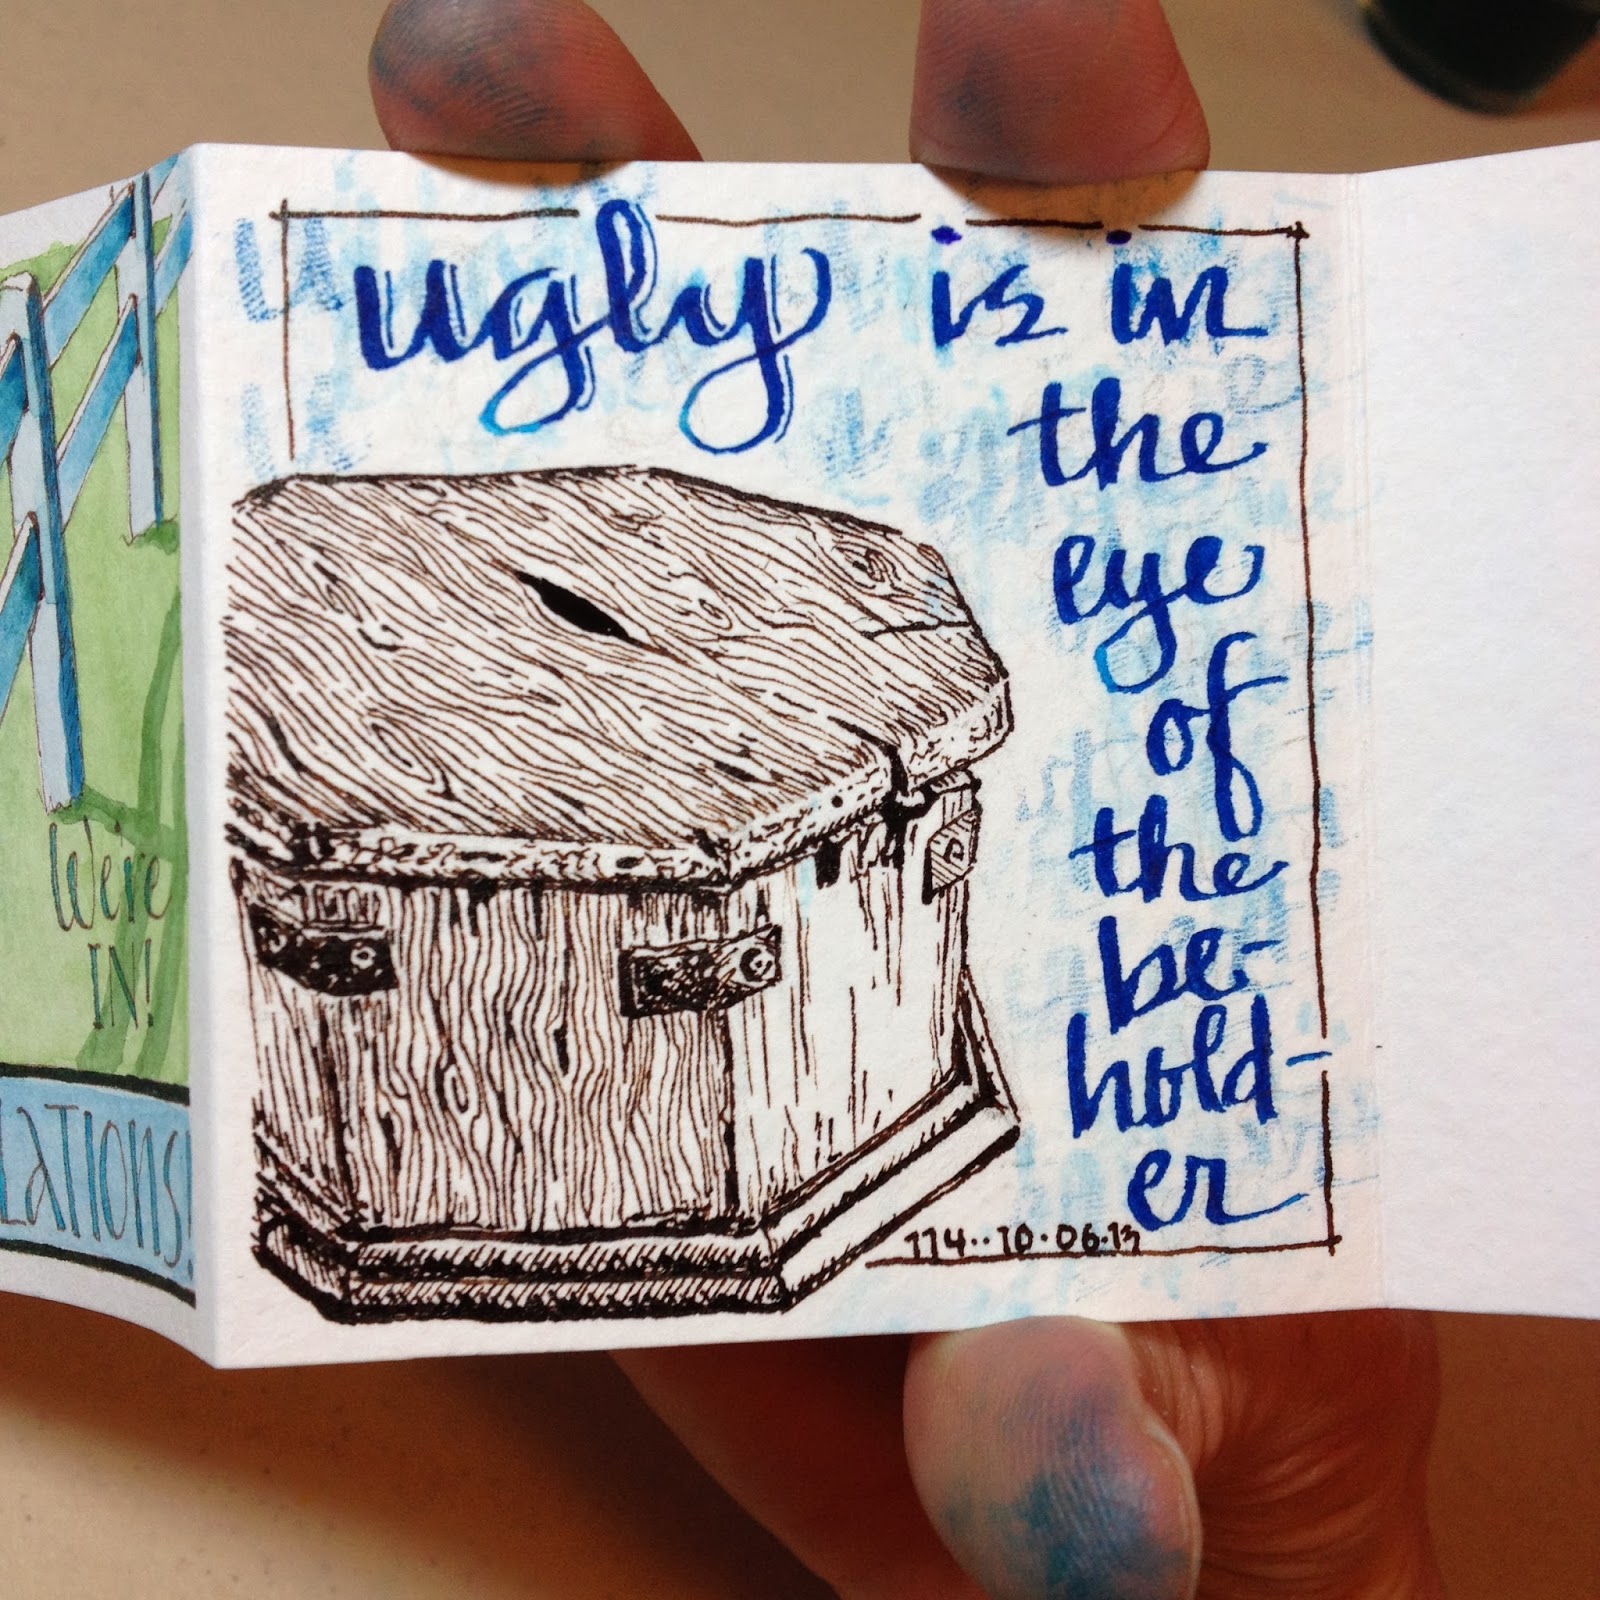 We're
IN!
LATIONS!
ugly is in
the
eye
of
the
be-
hold-
er
114..10.06.13